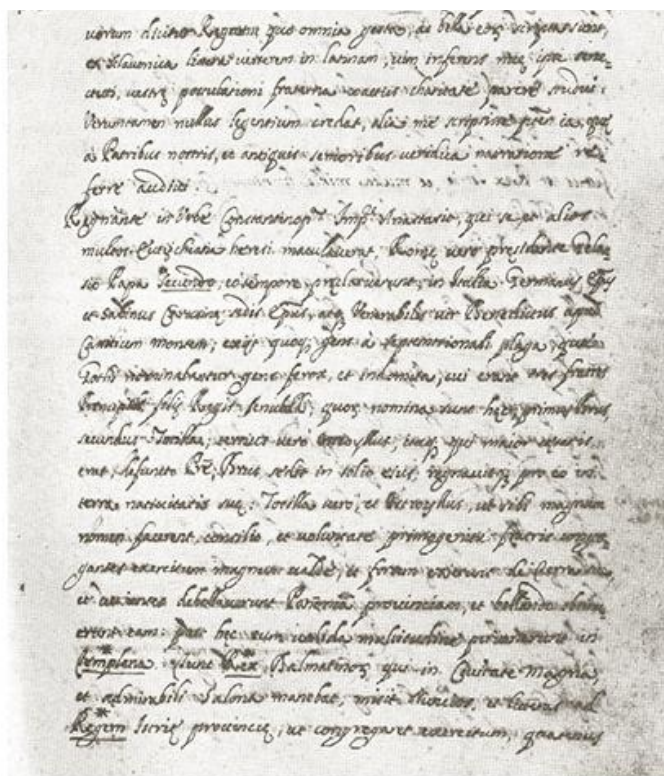 uorum dicitur Regnum quo omnia gesta, ac bella eorum scripta sunt,
ex sclavonica littera verterem in latinam, vim inferens meę ipse senec-
tuti, vestrę postulationi fraterna coactus charitate parere studui.
Veruntamen nullus legentium credat, alia me scripsisse pręter ea, quę
à Patribus nostris, et antiquis senioribus veridica narratione re-
ferre audivi
Regnante in Urbe Constantinop. Imp. Anastasio, qui se et alios
multos Eutychiana heresi maculaverat, Romę vero pręsidente Gela-
sio Papa Secundo, eo tempore pręclaruerunt in Italia Germanus Epũs
et Sabinus Canusinę sedis Epũs, atq Venerabilis vir Benedictus apud
Cassinum montem, exijt quoq gens à septentrionali plaga, quę
Gothi nominabantur gens ferox, et indomita, cui erant tres fratres
Principes filij Regis Senubaldi, quor nomina sunt hęc, primus Brus,
secundus Totilla, tertius vero Ostroyllus,
erat, defuncto Prẽ, Brus sedit in solio eius, regnavitq pro eo in
terra nativitatis suę. Totilla vero, et Ostroyllus, ut sibi magnum
nomen facerent, consilio, et voluntate primogeniti fratris congre-
gantes exercitum magnum valde, et fortem exierunt de terra sua,
et venientes debellaverunt Pannoniã provinciam, et bellando obtinu-
erunt eam: post hęc cum valida multitudine perrexerunt in
Templana. Tunc Rex Dalmatinor qui in Civitate magna,
et admirabili Salona manebat, misit nuncios, et litteras ad
Regem Istrię provincię, ut congregaret exercitum, quatenus